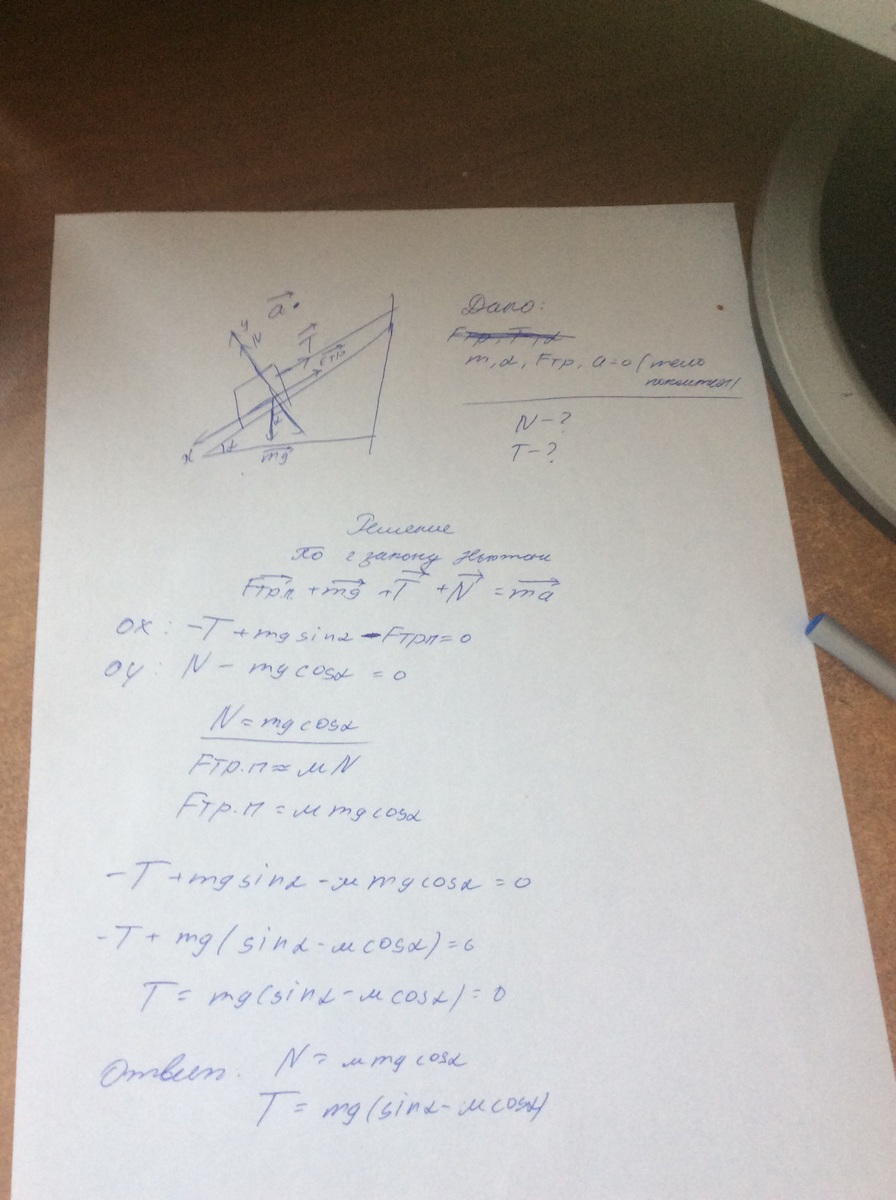 a
y
N
T
Fтр
α
x
α
mg
Дано:
Fтр, T, α
m, α, Fтр, a=0 (тело
покоится)
N-?
T-?
Решение
По 2 закону Ньютона
Fтр.п + mg + T + N = ma
OX: -T + mg sinα - Fтрп = 0
OY: N - mg cosα = 0
N = mg cosα
Fтр.п = μN
Fтр.п = μ mg cosα
-T + mg sinα - μ mg cosα = 0
-T + mg (sinα - μ cosα) = 0
T = mg (sinα - μ cosα) = 0
Ответ. N = μ mg cosα
T = mg (sinα - μ cosα)